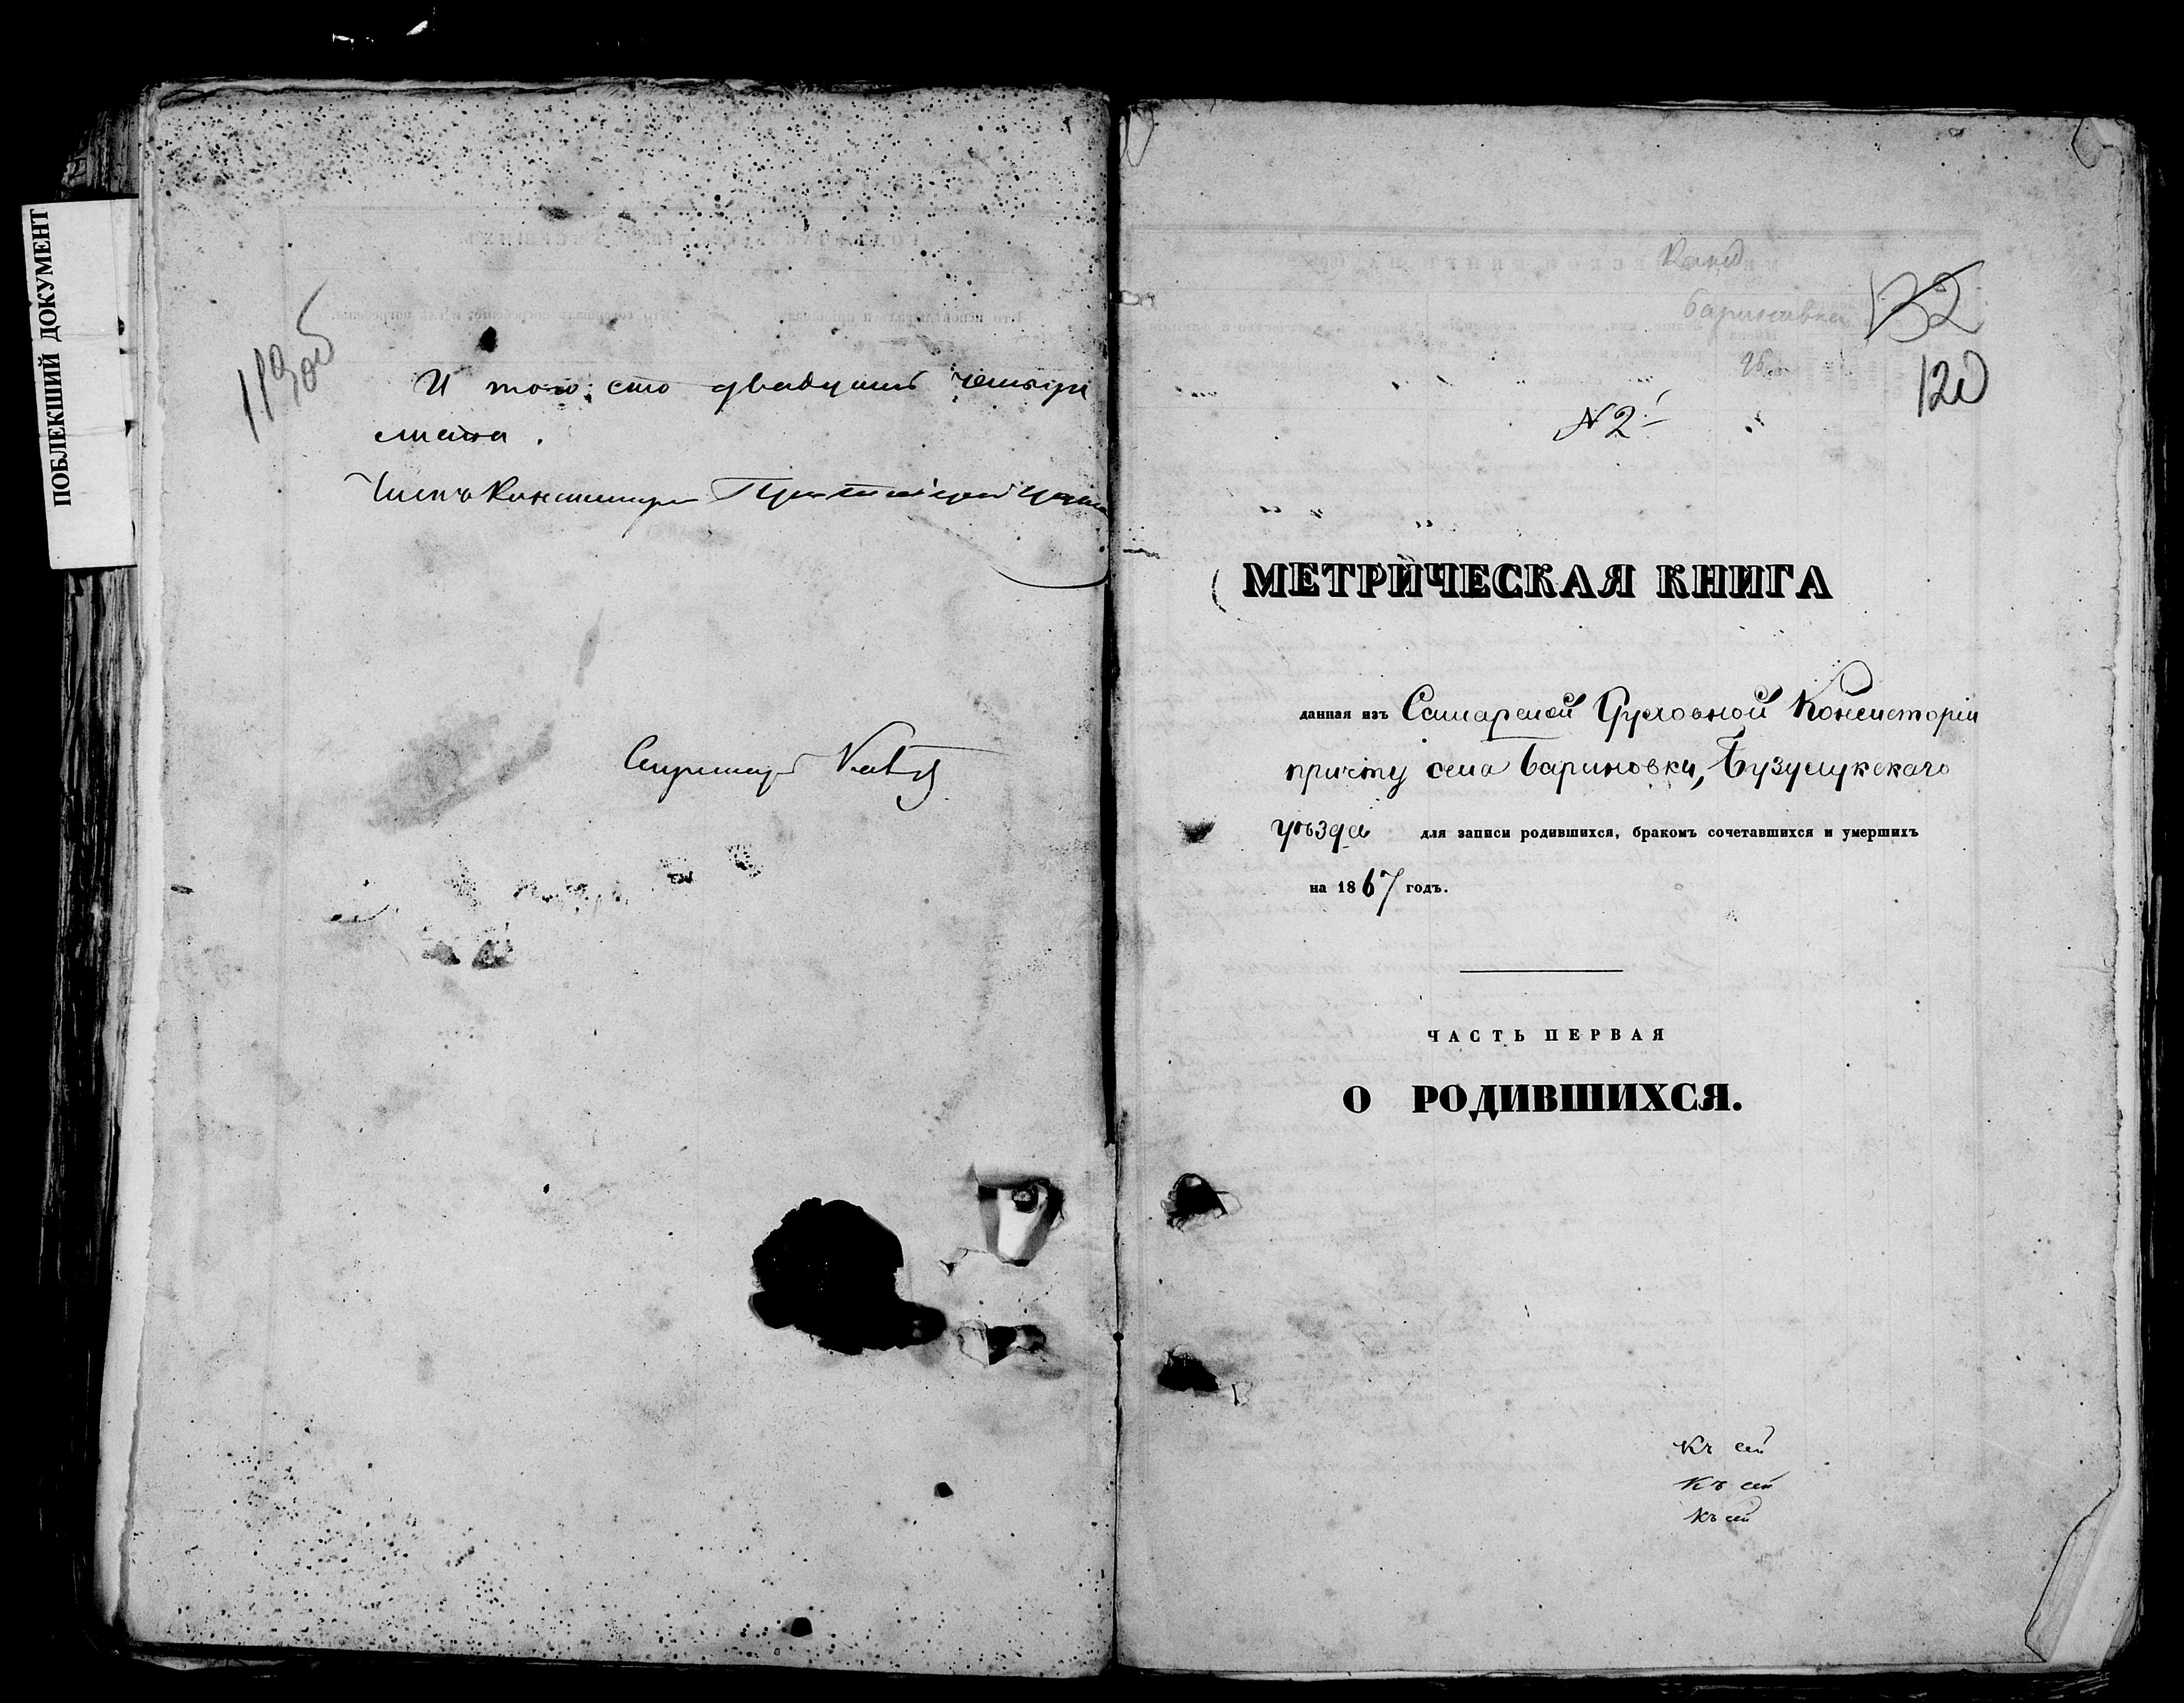 ПОБЛЕКШИЙ ДОКУМЕНТ
119 об
И того сто двадцать четыре
листа.
Членъ Консисторіи Протоіерей
Секретарь
Бариновка
132
120
№ 2.
МЕТРИЧЕСКАЯ КНИГА
данная изъ Самарской Духовной Консисторіи
причту села Бариновки, Бузулукскаго
уѣзда для записи родившихся, бракомъ сочетавшихся и умершихъ
на 1867 годъ.
ЧАСТЬ ПЕРВАЯ
О РОДИВШИХСЯ.
Къ сей
Къ сей
Къ сей